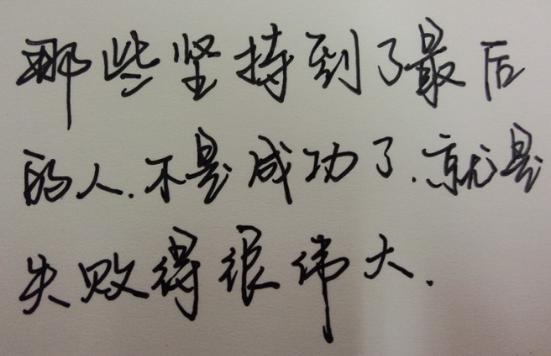 那些坚持到了最后
的人.不是成功了.就是
失败得很伟大.